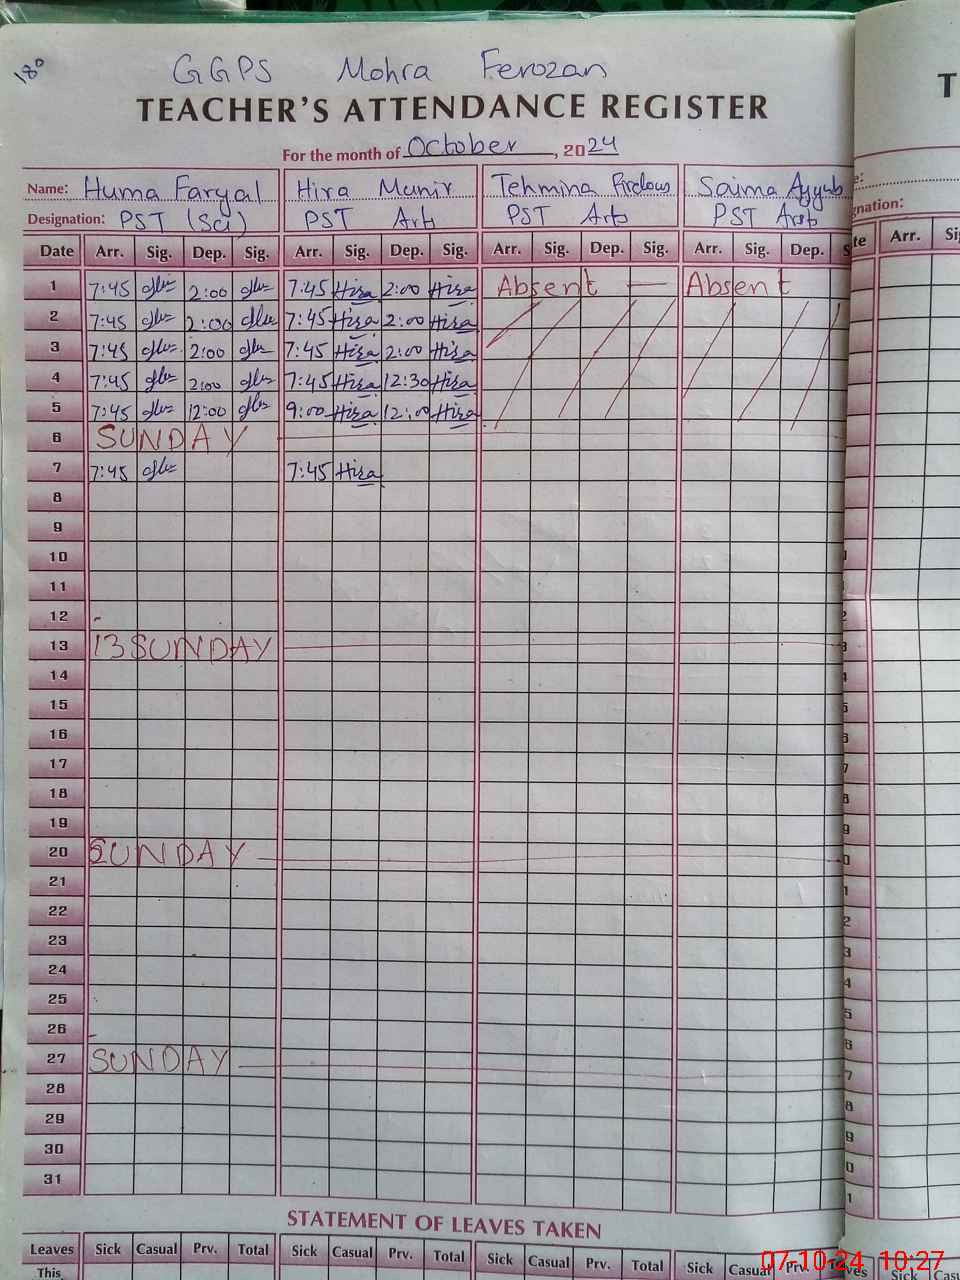 180
GGPS Mohra Ferozan
TEACHER'S ATTENDANCE REGISTER
For the month of October, 2024
Name: Huma Faryal Hira Munir Tehmina Firdous Saima Ayyub
Designation: PST (Sci) PST Arts PST Arts PST Arts
Date Arr. Sig. Dep. Sig. Arr. Sig. Dep. Sig. Arr. Sig. Dep. Sig. Arr. Sig. Dep. S
1 7:45 2:00 7:45 Hira 2:00 Hira Absent Absent
2 7:45 2:00 7:45 Hira 2:00 Hira
3 7:45 2:00 7:45 Hira 2:00 Hira
4 7:45 2:00 7:45 Hira 12:30 Hira
5 7:45 12:00 9:00 Hira 12:00 Hira
6 SUNDAY
7 7:45 7:45 Hira
8
9
10
11
12
13 13 SUNDAY
14
15
16
17
18
19
20 SUNDAY
21
22
23
24
25
26
27 SUNDAY
28
29
30
31
STATEMENT OF LEAVES TAKEN
Leaves Sick Casual Prv. Total Sick Casual Prv. Total Sick Casual Prv. Total Sick Casual Prv.
This
T
nation:
te Arr. Si
Sick Cas
07-10-24 10:27